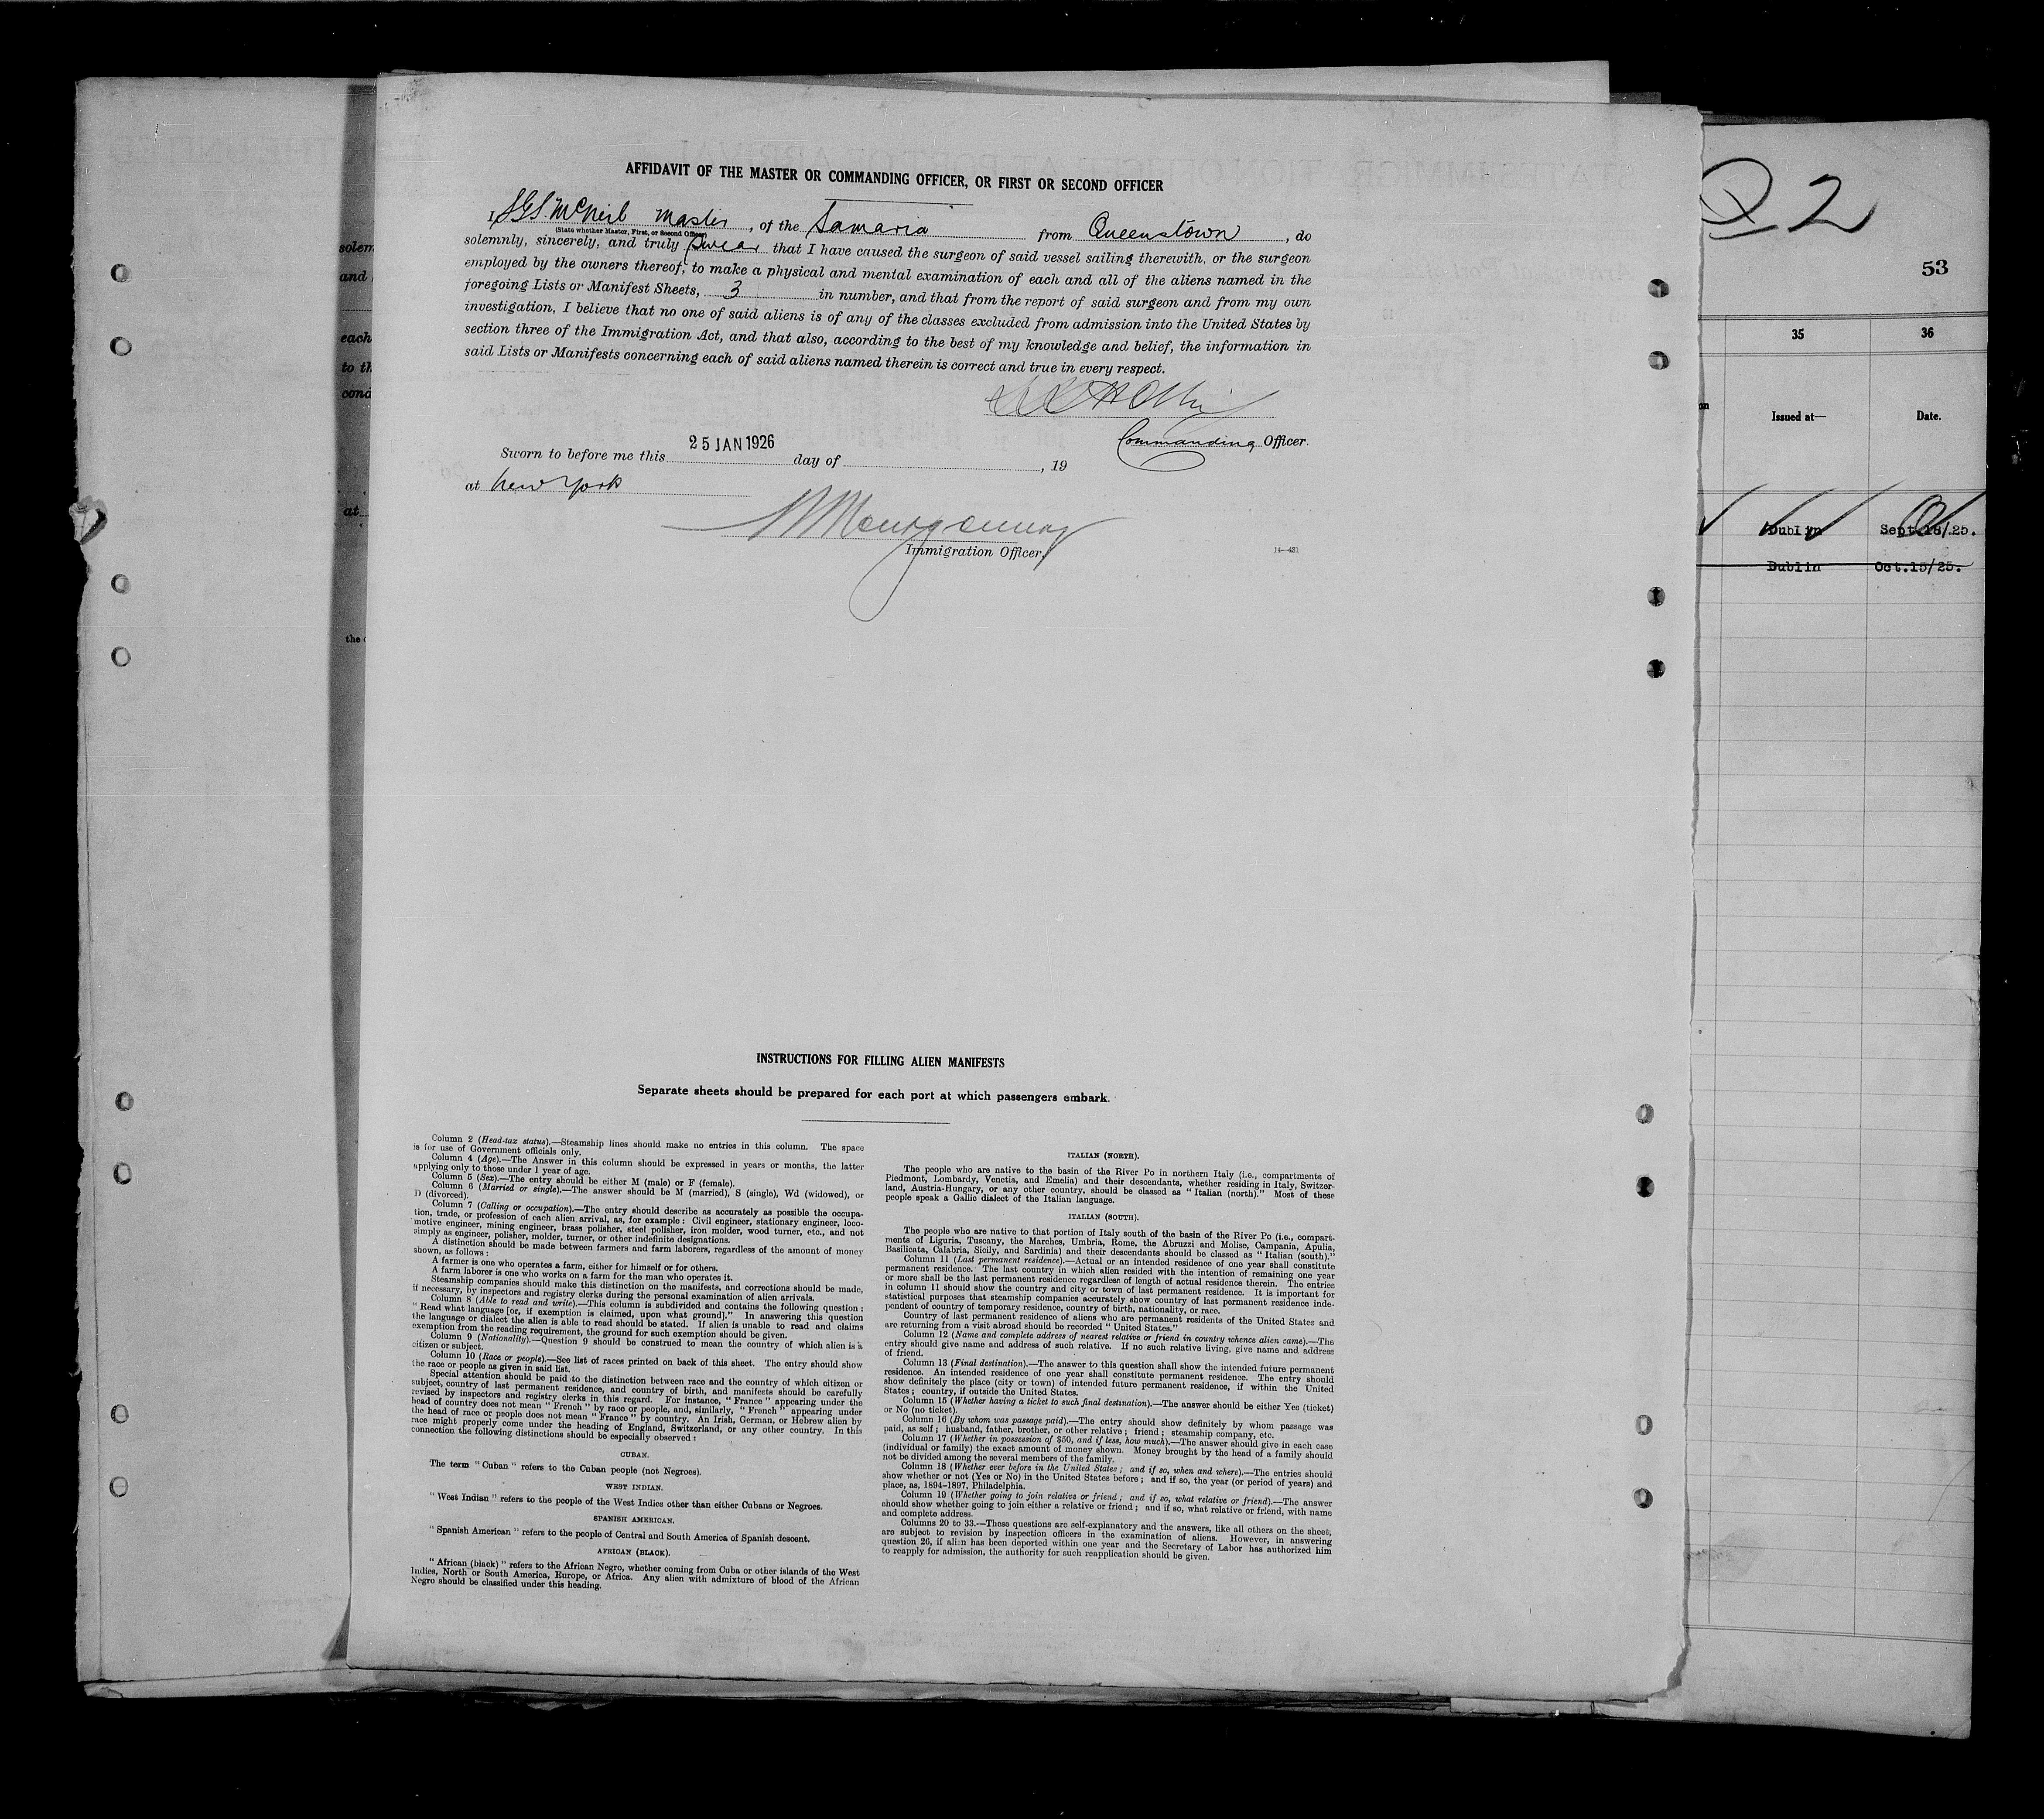 AFFIDAVIT OF THE MASTER OR COMMANDING OFFICER, OR FIRST OR SECOND OFFICER
I, S.G.S. McNeil Master, of the Samaria from Queenstown, do
(State whether Master, First, or Second Officer)
solemnly, sincerely, and truly swear that I have caused the surgeon of said vessel sailing therewith, or the surgeon
employed by the owners thereof, to make a physical and mental examination of each and all of the aliens named in the
foregoing Lists or Manifest Sheets, 3 in number, and that from the report of said surgeon and from my own
investigation, I believe that no one of said aliens is of any of the classes excluded from admission into the United States by
section three of the Immigration Act, and that also, according to the best of my knowledge and belief, the information in
said Lists or Manifests concerning each of said aliens named therein is correct and true in every respect.
Commanding Officer.
Sworn to before me this 25 JAN 1926 day of , 19
at New York
Montgomery
Immigration Officer.
14—431
INSTRUCTIONS FOR FILLING ALIEN MANIFESTS
Separate sheets should be prepared for each port at which passengers embark.
Column 2 (Head-tax status).—Steamship lines should make no entries in this column. The space
is for use of Government officials only.
Column 4 (Age).—The Answer in this column should be expressed in years or months, the latter
applying only to those under 1 year of age.
Column 5 (Sex).—The entry should be either M (male) or F (female).
Column 6 (Married or single).—The answer should be M (married), S (single), Wd (widowed), or
D (divorced).
Column 7 (Calling or occupation).—The entry should describe as accurately as possible the occupa-
tion, trade, or profession of each alien arrival, as, for example: Civil engineer, stationary engineer, loco-
motive engineer, mining engineer, brass polisher, steel polisher, iron molder, wood turner, etc., and not
simply as engineer, polisher, molder, turner, or other indefinite designations.
A distinction should be made between farmers and farm laborers, regardless of the amount of money
shown, as follows:
A farmer is one who operates a farm, either for himself or for others.
A farm laborer is one who works on a farm for the man who operates it.
Steamship companies should make this distinction on the manifests, and corrections should be made,
if necessary, by inspectors and registry clerks during the personal examination of alien arrivals.
Column 8 (Able to read and write).—This column is subdivided and contains the following question:
"Read what language [or, if exemption is claimed, upon what ground]." In answering this question
the language or dialect the alien is able to read should be stated. If alien is unable to read and claims
exemption from the reading requirement, the ground for such exemption should be given.
Column 9 (Nationality).—Question 9 should be construed to mean the country of which alien is a
citizen or subject.
Column 10 (Race or people).—See list of races printed on back of this sheet. The entry should show
the race or people as given in said list.
Special attention should be paid to the distinction between race and the country of which citizen or
subject, country of last permanent residence, and country of birth, and manifests should be carefully
revised by inspectors and registry clerks in this regard. For instance, "France" appearing under the
head of country does not mean "French" by race or people, and, similarly, "French" appearing under
the head of race or people does not mean "France" by country. An Irish, German, or Hebrew alien by
race might properly come under the heading of England, Switzerland, or any other country. In this
connection the following distinctions should be especially observed:
CUBAN.
The term "Cuban" refers to the Cuban people (not Negroes).
WEST INDIAN.
"West Indian" refers to the people of the West Indies other than either Cubans or Negroes.
SPANISH AMERICAN.
"Spanish American" refers to the people of Central and South America of Spanish descent.
AFRICAN (BLACK).
"African (black)" refers to the African Negro, whether coming from Cuba or other islands of the West
Indies, North or South America, Europe, or Africa. Any alien with admixture of blood of the African
Negro should be classified under this heading.
ITALIAN (NORTH).
The people who are native to the basin of the River Po in northern Italy (i.e., compartments of
Piedmont, Lombardy, Venetia, and Emelia) and their descendants, whether residing in Italy, Switzer-
land, Austria-Hungary, or any other country, should be classed as "Italian (north)." Most of these
people speak a Gallic dialect of the Italian language.
ITALIAN (SOUTH).
The people who are native to that portion of Italy south of the basin of the River Po (i.e., compart-
ments of Liguria, Tuscany, the Marches, Umbria, Rome, the Abruzzi and Molise, Campania, Apulia,
Basilicata, Calabria, Sicily, and Sardinia) and their descendants should be classed as "Italian (south)."
Column 11 (Last permanent residence).—Actual or an intended residence of one year shall constitute
permanent residence. The last country in which alien resided with the intention of remaining one year
or more shall be the last permanent residence regardless of length of actual residence therein. The entries
in column 11 should show the country and city or town of last permanent residence. It is important for
statistical purposes that steamship companies accurately show country of last permanent residence inde-
pendent of country of temporary residence, country of birth, nationality, or race.
Country of last permanent residence of aliens who are permanent residents of the United States and
are returning from a visit abroad should be recorded "United States."
Column 12 (Name and complete address of nearest relative or friend in country whence alien came).—The
entry should give name and address of such relative. If no such relative living, give name and address
of friend.
Column 13 (Final destination).—The answer to this question shall show the intended future permanent
residence. An intended residence of one year shall constitute permanent residence. The entry should
show definitely the place (city or town) of intended future permanent residence, if within the United
States; country, if outside the United States.
Column 15 (Whether having a ticket to such final destination).—The answer should be either Yes (ticket)
or No (no ticket).
Column 16 (By whom was passage paid).—The entry should show definitely by whom passage was
paid, as self; husband, father, brother, or other relative; friend; steamship company, etc.
Column 17 (Whether in possession of $50, and if less, how much).—The answer should give in each case
(individual or family) the exact amount of money shown. Money brought by the head of a family should
not be divided among the several members of the family.
Column 18 (Whether ever before in the United States; and if so, when and where).—The entries should
show whether or not (Yes or No) in the United States before; and if so, the year (or period of years) and
place, as, 1894-1897, Philadelphia.
Column 19 (Whether going to join relative or friend; and if so, what relative or friend).—The answer
should show whether going to join either a relative or friend; and if so, what relative or friend, with name
and complete address.
Columns 20 to 33.—These questions are self-explanatory and the answers, like all others on the sheet,
are subject to revision by inspection officers in the examination of aliens. However, in answering
question 26, if alien has been deported within one year and the Secretary of Labor has authorized him
to reapply for admission, the authority for such reapplication should be given.
solem
and
each
to th
cond
at
the
2
53
35 36
on Issued at— Date.
Dublin Sept.18/25.
Dublin Oct.15/25.